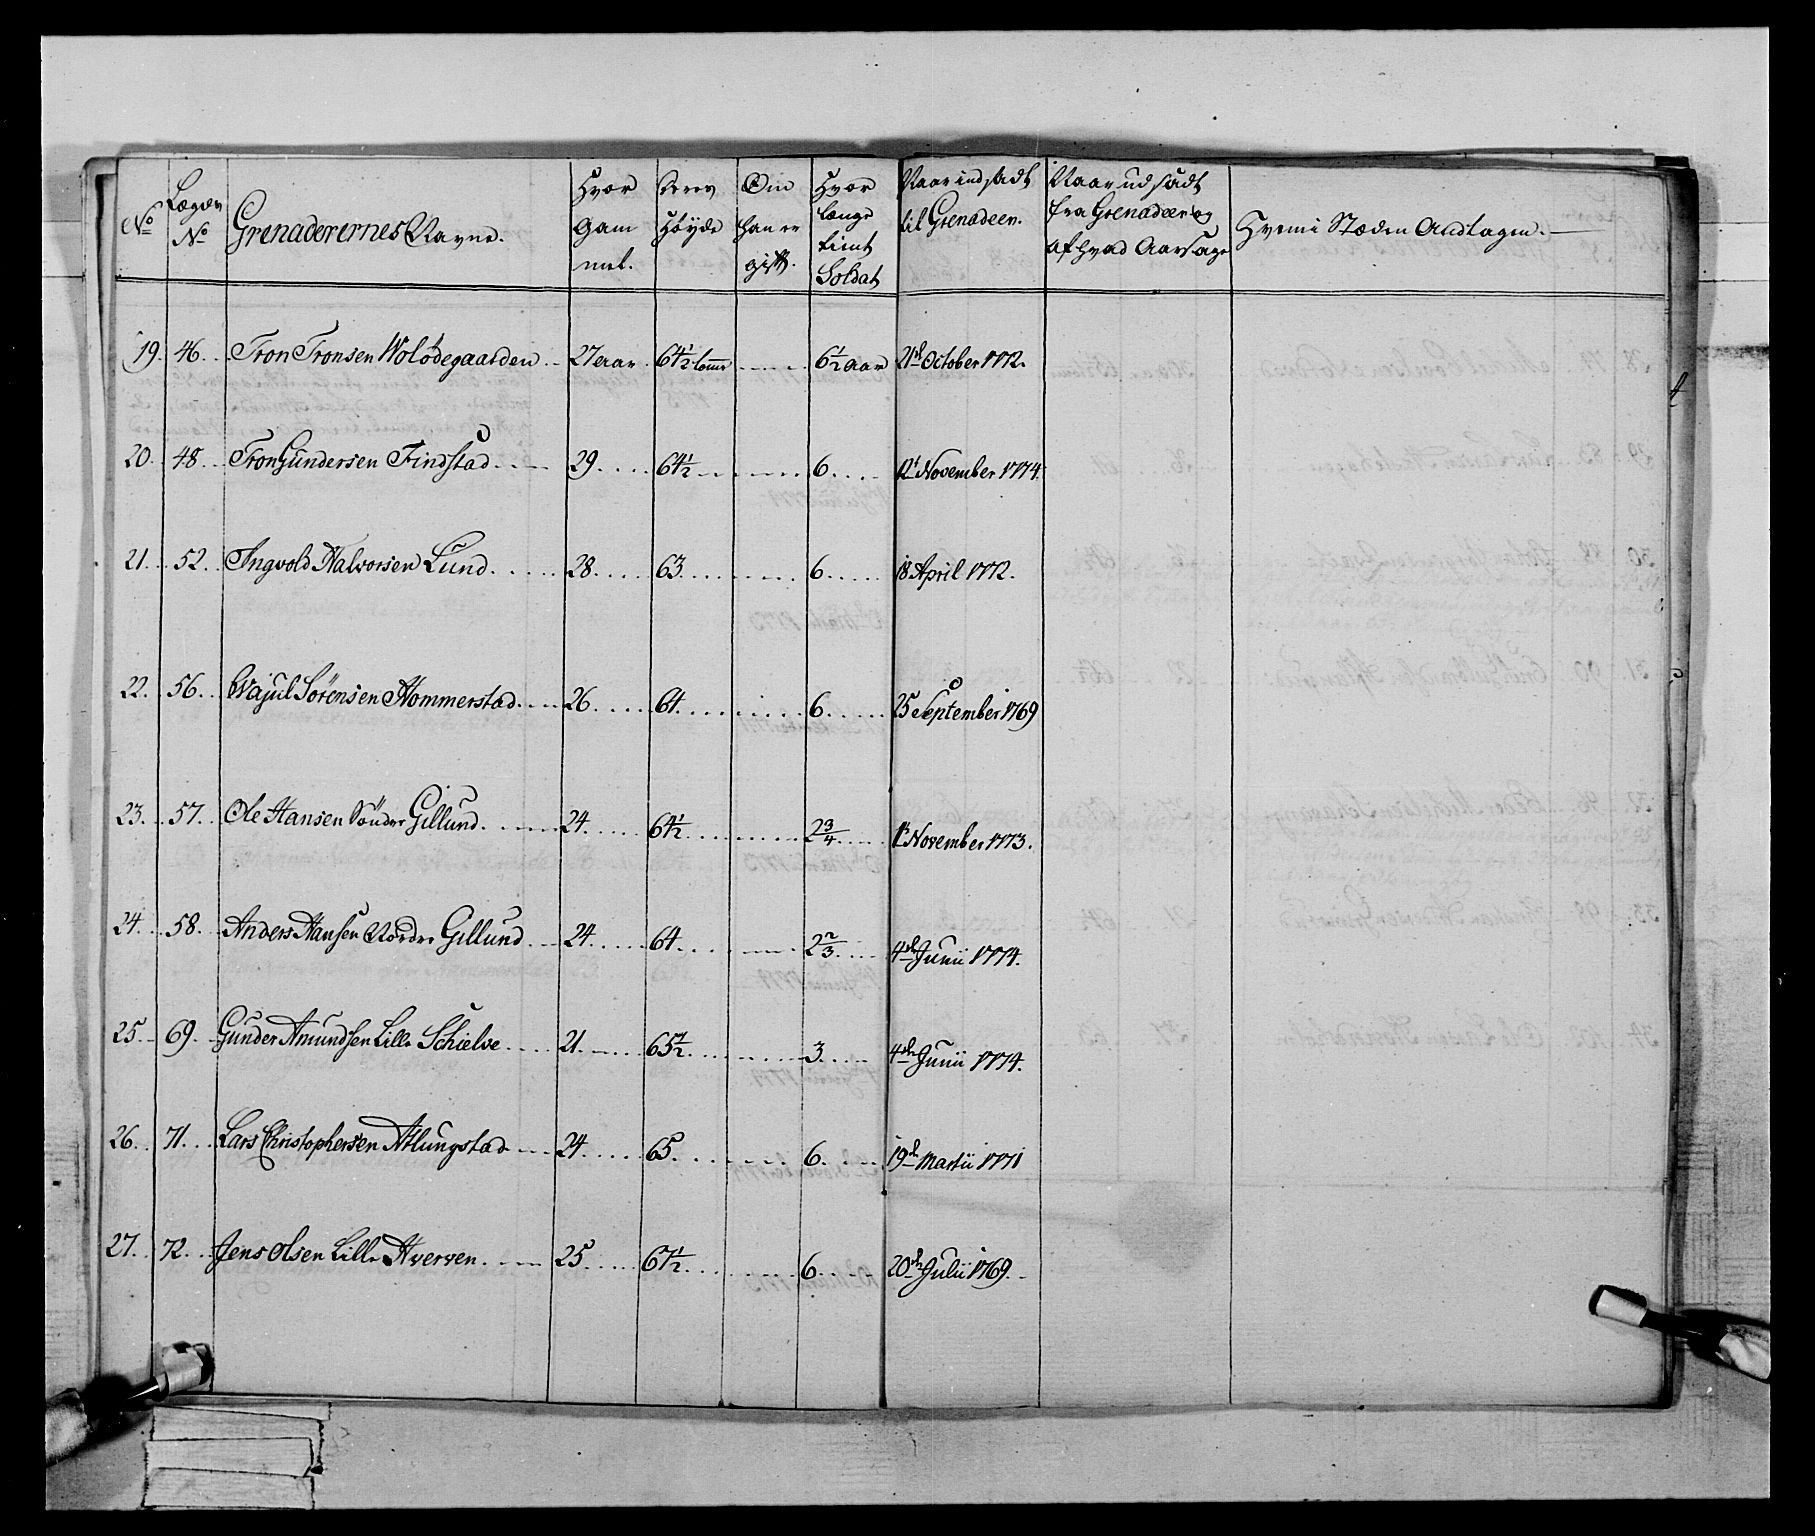 No
Lægdn No
Grenaderernes Navne.
Hvor gammel.
Deres Høyde
Om han er gift.
Hvor længe tient Soldat
Naar indsadt til Grenadeer.
Naar udsadt fra Grenadeer og af hvad Aarsage
Hvem i Stæden Andtagen.
19. 46. Tron Tronsen Wolödegaarden 27 aar 64½ tomr 6½ aar 21de October 1772.
20. 48. Tron Gundersen Findstad 29. 64½ 6. 12t November 1774.
21. 52. Ingvold Halvorsen Lund 28. 63. 6. 18 April 1772.
22. 56. Wajul Sörensen Hommerstad 26. 64. 6. 25 September 1769
23. 57. Ole Hansen Sönder Gillund 24. 64½ 2¾ 1t November 1773.
24. 58. Anders Hansen Nordre Gillund 24. 64. 2⅔ 4de Junii 1774.
25. 69. Gunder Amundsen Lille Schielve 21. 65½ 3. 4de Junii 1774.
26. 71. Lars Christophersen Atlungstad 24. 65. 6. 19de Martii 1771
27. 72. Jens Olsen Lille Hverven 25. 67½ 6. 20de Julii 1769.